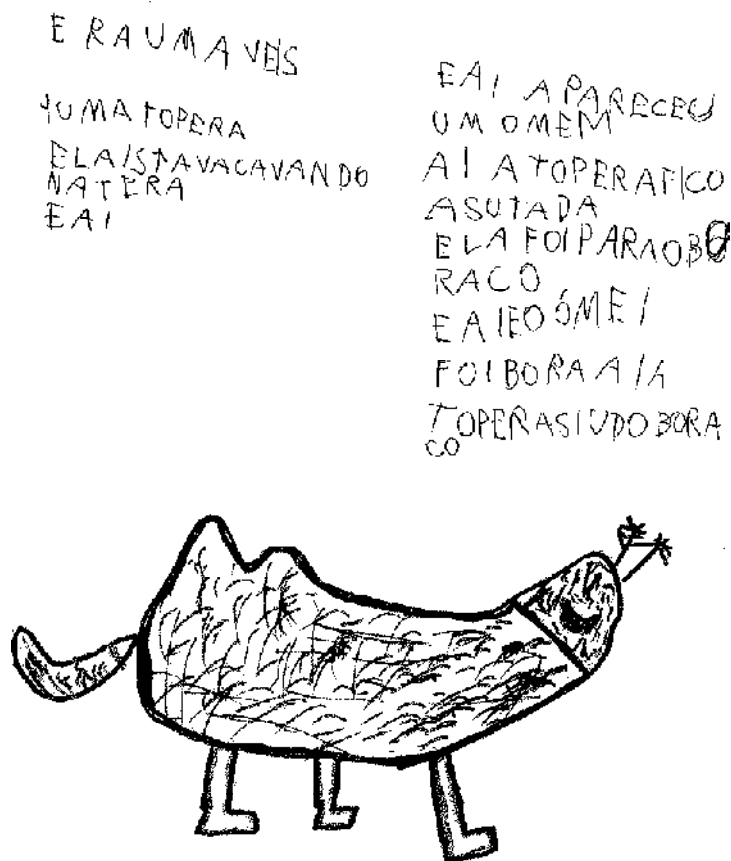 ERA UMA VEIS
UMA TOPERA
ELA ISTAVA CAVANDO
NA TERA
E AI
E AI APARECEU
UM OMEM
AI A TOPERA FICO
ASUTADA
ELA FOI PARA O BO
RACO
E AI EO ÓMEI
FOI BORA AI A
TOPERA SIU DO BORA
CO